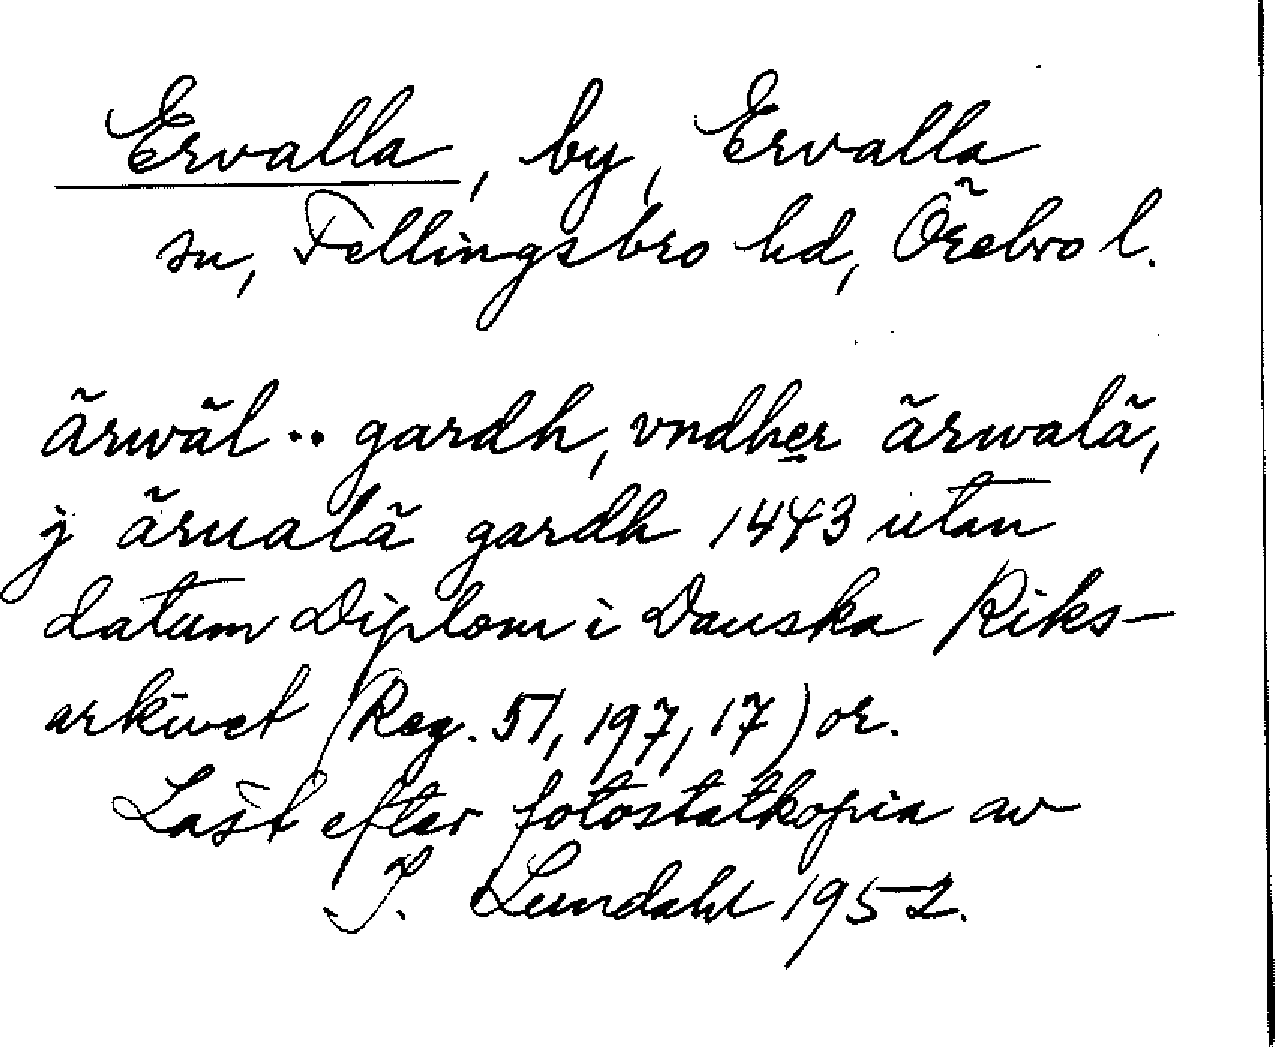 Ervalla, by, Ervalla
sn, Fellingsbro hd, Örebro l.
ärwäl·· gardh, vndher ärwalä,
j ärualä gardh 1443 utan
datum Diplom i Danska Riks-
arkivet (Reg. 51, 197, 17) or.
Läst efter fotostatkopia av
I. Lundahl 1952.